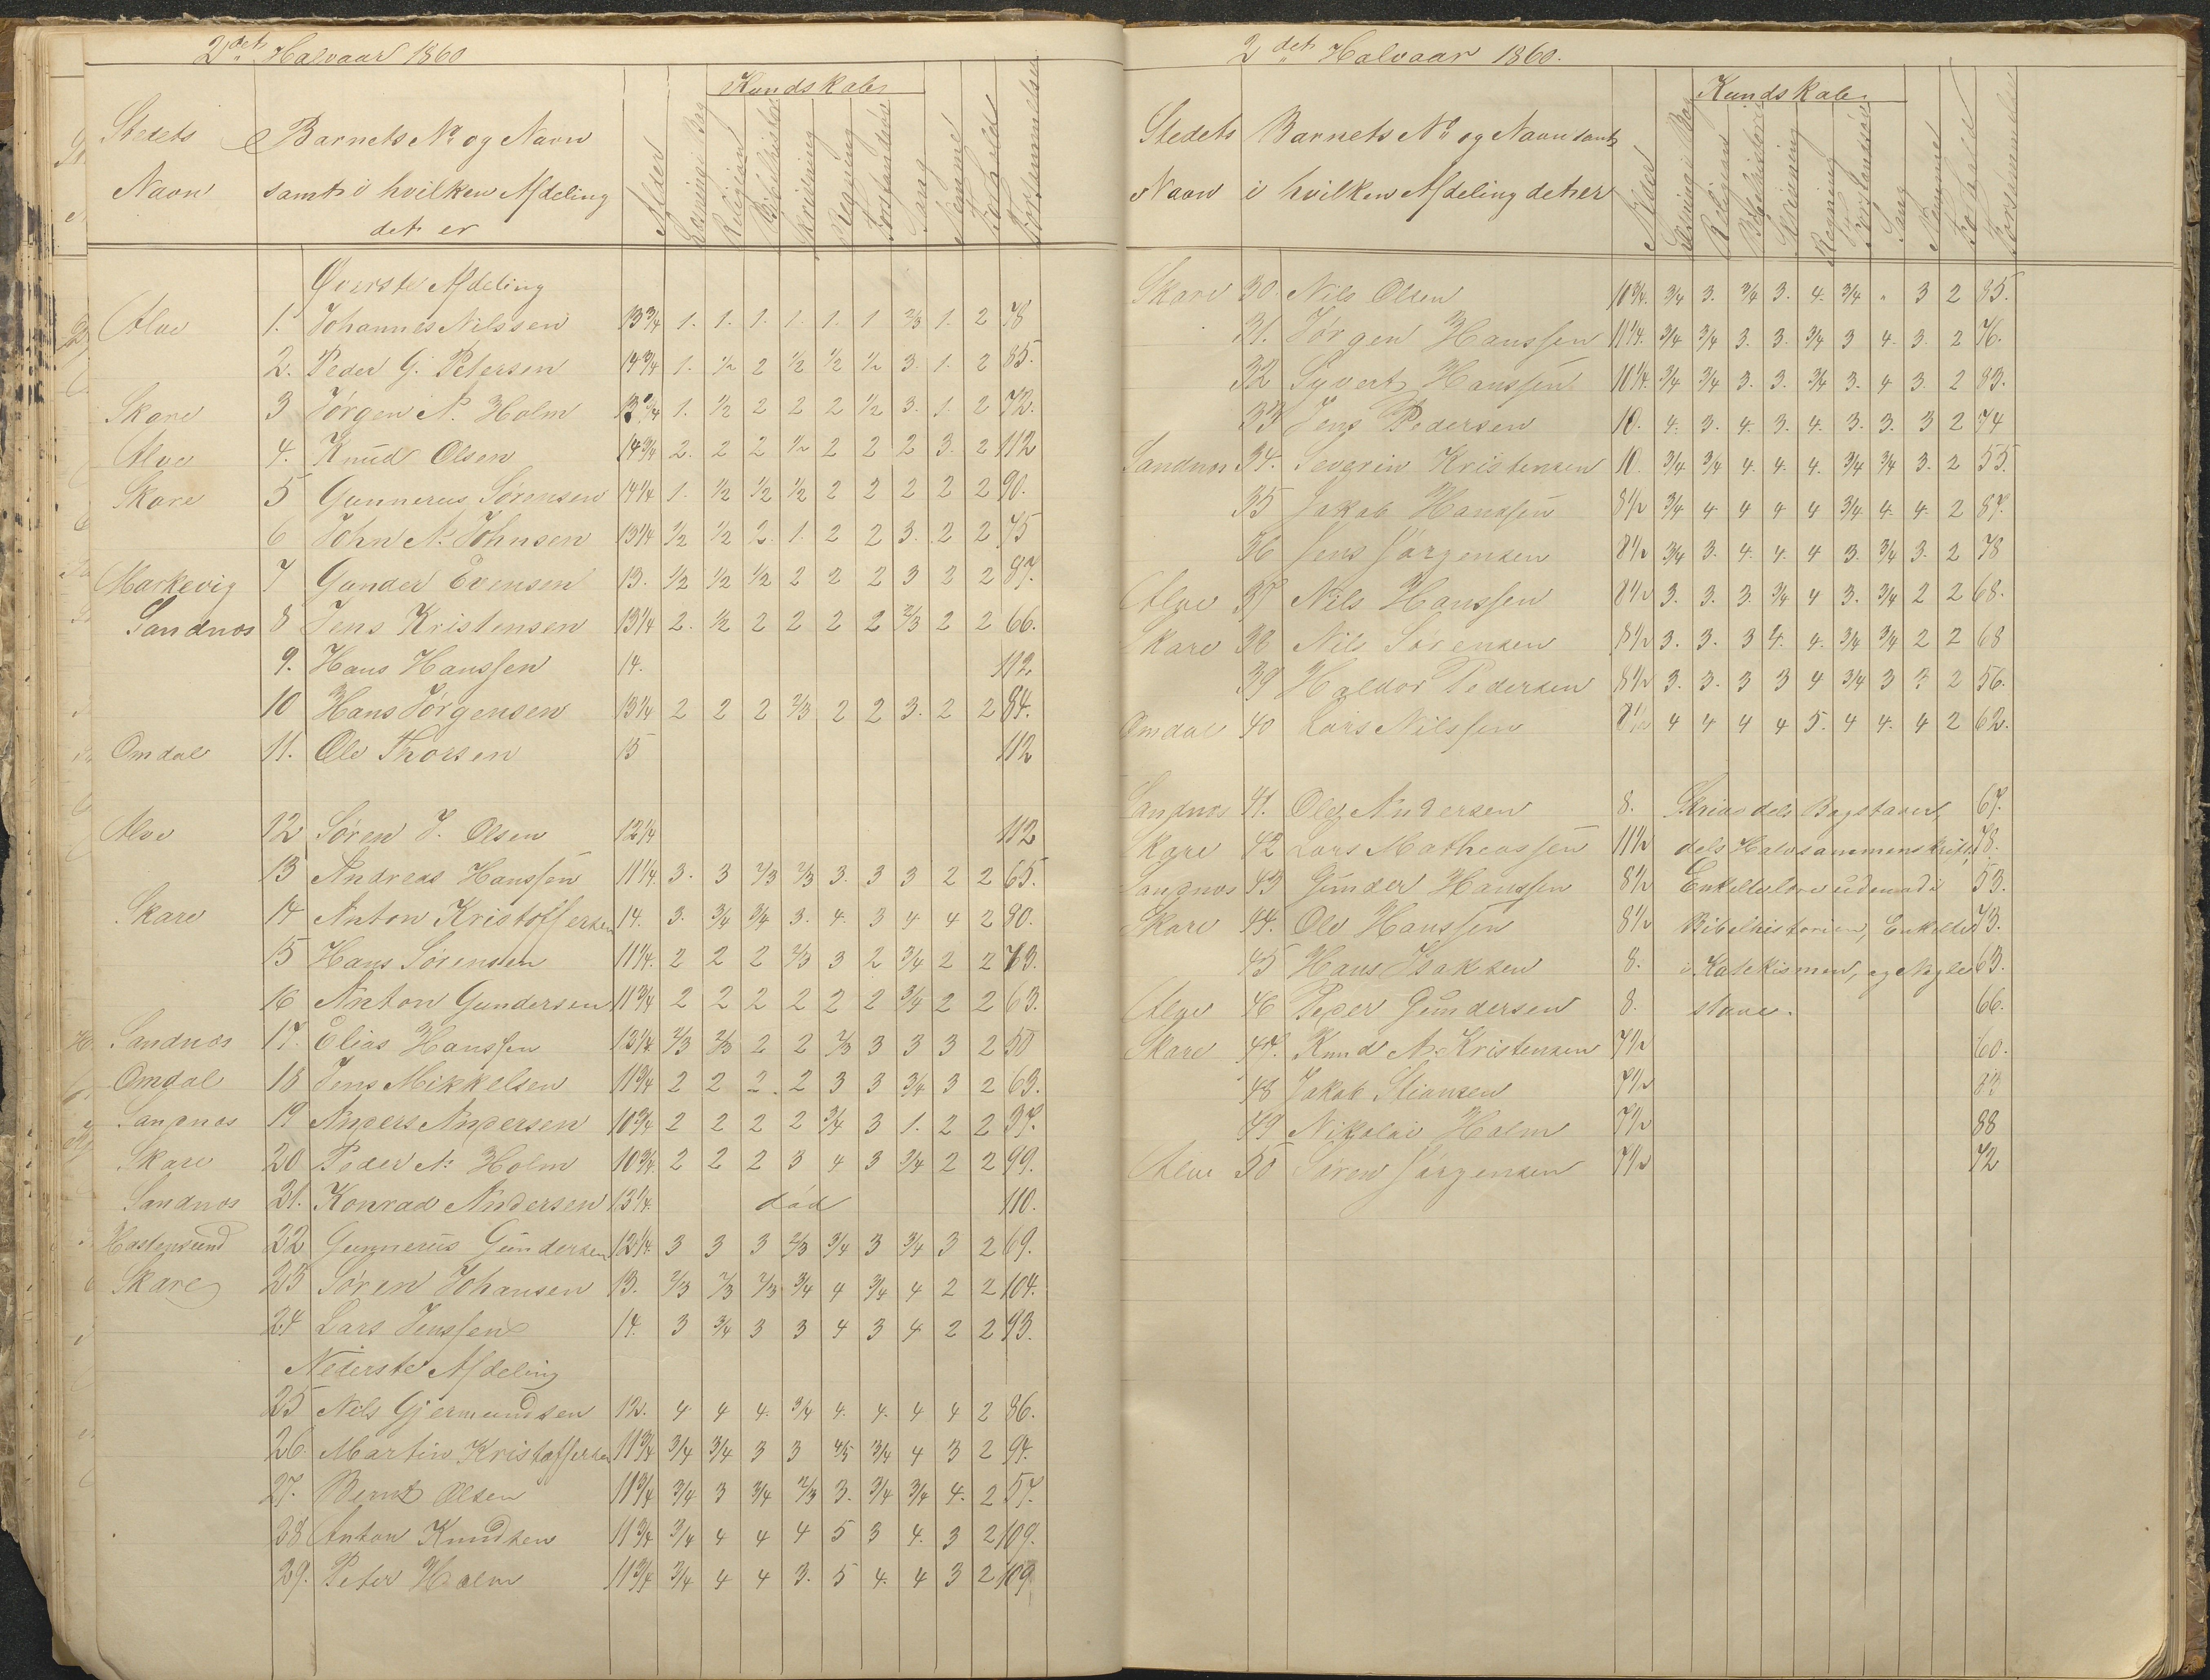 2det Halvaar 1860
Kundskaber
Stedets Navn Barnets No og Navn samt i hvilken Afdeling det er Alder Læsning i Bog Religion Bibelhistorie Skrivning Regning Forstandsøv Sang Nemme Forhold Forsømmelser
Øverste Afdeling
Alve 1. Johannes Nilssen 13 3/4 1. 1. 1. 1. 1. 1 2/3 1. 2 78
2. Peder G. Petersen 14 3/4 1. 1/2 2 1/2 1/2 1/2 3. 1. 2 85.
Skare 3 Jørgen N. Holm 13 3/4 1. 1/2 2 2 2 1/2 3. 1. 2 72.
Alve 4. Knud Olsen 14 3/4 2. 2 2 1/2 2 2 2 3. 2 112
Skare 5 Gunnerus Sørensen 14 1/4 1. 1/2 1/2 1/2 2 2 2 2 2 90.
6 John N. Johnsen 13 1/4 1/2 1/2 2. 1. 2 2 3. 2 2 75
Markevig 7 Gunder Evensen 13. 1/2 1/2 1/2 2 2 2 3 2 2 87.
Sandnæs 8 Jens Kristensen 13 1/4 2. 1/2 2 2 2 2 2/3 2 2 66.
9. Hans Hanssen 14. 112.
10 Hans Jørgensen 13 1/4 2 2 2 2/3 2 2 3. 2 2 84.
Omdal 11. Ole Thorsen 15 112
Alve 12 Søren J. Olsen 12 1/4 112
13 Andreas Hanssen 11 1/4. 3. 3 2/3 2/3 3. 3 3 2 2 65.
Skare 14 Anton Kristoffersen 14. 3. 3/4 3/4 3. 4. 3 4 4 2 90.
15 Hans Sørensen 11 1/4. 2 2 2 2/3 3 2 3/4 2 2 73.
16 Anton Gundersen 11 3/4 2 2 2 2 2 2 3/4 2 2 63.
Sandnæs 17. Elias Hanssen 13 1/4 2/3 2/3 2 2 2/3 3 3 3 2 50
Omdal 18 Jens Mikkelsen 11 3/4 2 2 2 2 3 3 3/4 3 2 63.
Sandnæs 19 Anders Andersen 10 3/4 2 2 2 2 3/4 3 1. 2 2 37.
Skare 20 Peder N. Holm 10 3/4. 2 2 2 3 4 3 3/4 2 2 99.
Sandnæs 21. Konrad Andersen 13 1/4. død 110.
Hastensund 22 Gunnerus Gundersen 12 1/4. 3 3 3 2/3 3/4 3 3/4 3 2 69.
Skare 23 Søren Johansen 13. 2/3 2/3 2/3 3/4 4 3/4 4 2 2 104.
24 Lars Jenssen 14. 3 3/4 3 3 4 3 4 2 2 93.
Nederste Afdeling
25 Nils Gjermundsen 12. 4 4 4. 3/4 4. 4. 4 4 2 86.
26. Martin Kristoffersen 11 3/4 3/4 3/4 3 3 4/5 3/4 4 3 2 94.
27. Bernt Olsen 11 3/4 3/4 3 3/4 2/3 3. 3/4 3/4 4. 2 57.
28 Anton Knudsen 11 3/4 3/4 4 4 4 5 3 4. 3 2 109.
29. Peter Holm 11 3/4 3/4 4 4 3. 5 4. 4 3 2 109
2det Halvaar 1860.
Kundskaber
Stedets Navn Barnets No og Navn samt i hvilken Afdeling det er Alder Læsning i Bog Religion Bibelhistorie Skrivning Regning Forstandsøv Sang Nemme Forhold Forsømmelser
Skare 30. Nils Olsen 10 3/4. 3/4 3. 3/4 3. 4. 3/4 " 3 2 85.
31. Jørgen Hanssen 11 1/4. 3/4 3/4 3. 3. 3/4 3 4. 3. 2 76.
32 Syvert Hanssen 10 1/4. 3/4 3/4 3. 3. 3/4 3. 4 3. 2 83.
33 Jens Pedersen 10. 4. 3. 4. 3. 4. 3. 3. 3 2 74
Sandnæs 34. Severin Kristensen 10. 3/4 3/4 4. 4. 4. 3/4 3/4 3. 2 55.
35 Jakob Hanssen 8 1/2 3/4 4 4 4 4 3/4 4. 4. 2 87.
36 Jens Jørgensen 8 1/2 3/4 3. 4. 4. 4 3. 3/4 3. 2 78
Alve 37 Nils Hanssen 8 1/2 3. 3. 3. 3/4 4 3. 3/4 2 2 68.
Skare 38 Nils Sørensen 8 1/2 3. 3. 3 4. 4. 3/4 3/4 2 2 68
39 Haldor Pedersen 8 1/2 3. 3. 3 3 4 3/4 3 2 56.
Omdal 40 Lars Nilssen 8 1/2 4 4 4 4 5. 4 4. 4 2 62.
Sandnæs 41. Ole Andersen 8. Skriver dels Bogstaver, 67.
Skare 42 Lars Matheassen 11 1/2 dels Halvsammenskrift, 78.
Sandnæs 43 Gunder Hanssen 8 1/2 Enkelte lære udenad i 53.
Skare 44. Ole Hanssen 8 1/2 Bibelhistorien, Enkelte 73.
45 Hans Isaksen 8. i Katekismen, og Nogle 63.
Alve 46 Peder Gundersen 8. stave. 66.
Skare 47. Knud A. Kristensen 7 1/2 60.
48 Jakob Stiansen 7 1/2
49 Nikolai Holm 7 1/2 88
Alve 50 Søren Jørgensen 7 1/2 72